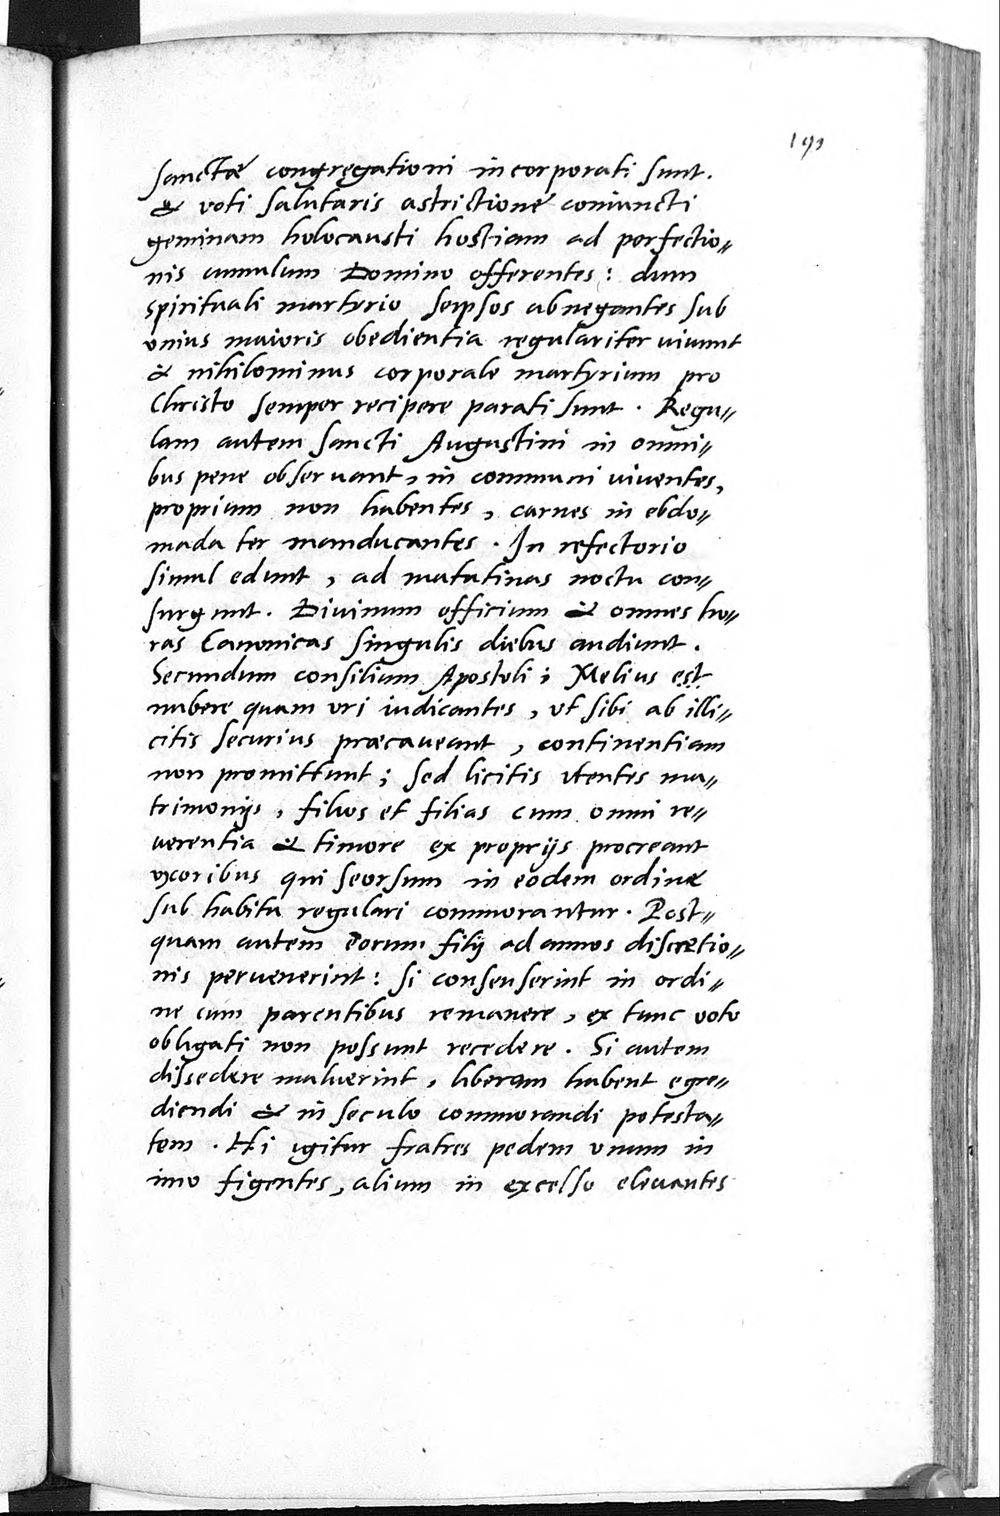 193
sanctæ congregationi incorporati sunt.
& voti salutaris astrictione coniuncti
geminam holocausti hostiam ad perfectio„
nis cumulum Domino offerentes: dum
spirituali martyrio seipsos abnegantes sub
unius maioris obedientia regulariter uiuunt
& nihilominus corporale martyrium pro
Christo semper recipere parati sunt. Regu„
lam autem sancti Augustini in omni„
bus pene obseruant, in communi uiuentes,
proprium non habentes, carnes in ebdo„
mada ter manducantes. In refectorio
simul edunt, ad matutinas noctu con„
surgunt. Divinum officium & omnes ho„
ras Canonicas singulis diebus audiunt.
Secundum consilium Apostoli; Melius est
nubere quam vri iudicantes, vt sibi ab illi„
citis securius præcaueant, continentiam
non promittunt; sed licitis vtentes ma„
trimonijs, filios et filias cum omni re„
uerentia & timore ex proprijs procreant
vxoribus qui seorsum in eodem ordine
sub habitu regulari commorantur. Post„
quam autem eorum filij ad annos discretio„
nis peruenerint: si consenserint in ordi„
ne cum parentibus remanere, ex tunc voto
obligati non possunt recedere. Si autem
dissedere maluerint, liberam habent egre„
diendi & in seculo commorandi potesta„
tem. Hi igitur fratres pedem vnum in
imo figentes, alium in excelso eleuantes